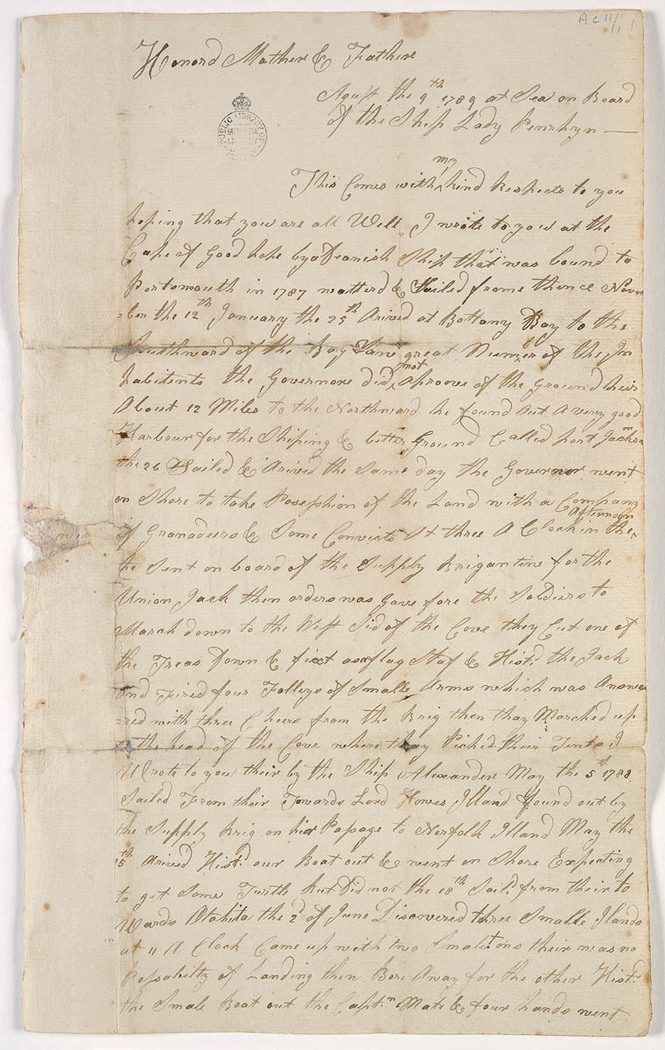 Ac 11/1
Honord Mother & Father
Agust the 9th 1789 at Sea on Board
of the Ship Lady Penrhyn
This Comes with my kind Respects to you
hoping that yow are all Well I wrote to yow at the
Cape of Good hope by a Deanish Ship that was bound to
Portsmouth in 1787 & Sailed frome thence Novm
=ber the 12th January the 25th Arived at Bottany Bay to the
Southward of the Bay Saw great Number of the In
habitents the Governore did not Aproove of the Ground heir
About 12 Miles to the Northward he found out A very good
Harbour for the Shiping & better Ground Called port Jackson
the 26 Sailed & Arived the Same day the Governor went
on Shore to take Poseption of the Land with a Company
of Granadeers & Some Convicts At three A Clock in the Afternoon
he Sent on board of the Supply Brigantine for the
Union Jack then orders was Gave fore the Soldiers to
March down to the West Sid of the Cove they Cut one of
the Treas Down & fixt as a flag Staf & Histd the Jack
and Fired four Folleys of Smalle Arms which was Answe
=red with three Cheirs from the Brig then thay Marched up
to the head of the Cove where thay Piched their Tents I
Wrote to yow their by the Ship Alexander May the 5th 1788
Sailed From their Towards Lord Howes Illand found out by
the Supply Brig on hir Pasage to Norfolk Illand May the
15th Arived Histd our Boat out & went on Shore Expecting
to get Some Turtle but Did not the 18th Saild from their to
Wards Otahita the 2d of June Discovered three Smalle Ilands
at 11 A Clock Came up with two Small ons their was no
Posobility of Landing then Bore Away for the other Histd
the Smale Boat out the Captn Mate & four hands went